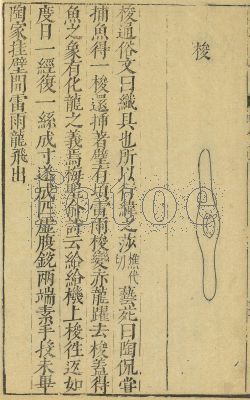 梭
梭通俗文曰織具也所以行緯之莎樵代切藝苑曰陶侃嘗
捕魚得一梭還揷著壁有頃雷雨梭變赤龍躍去梭葢得
魚之象有化龍之義焉詩云紛紛機上梭徃返如
度日一經復一絲成寸遂成匹虛腹銳兩端素手投未畢
陶家挂壁間雷雨龍飛出